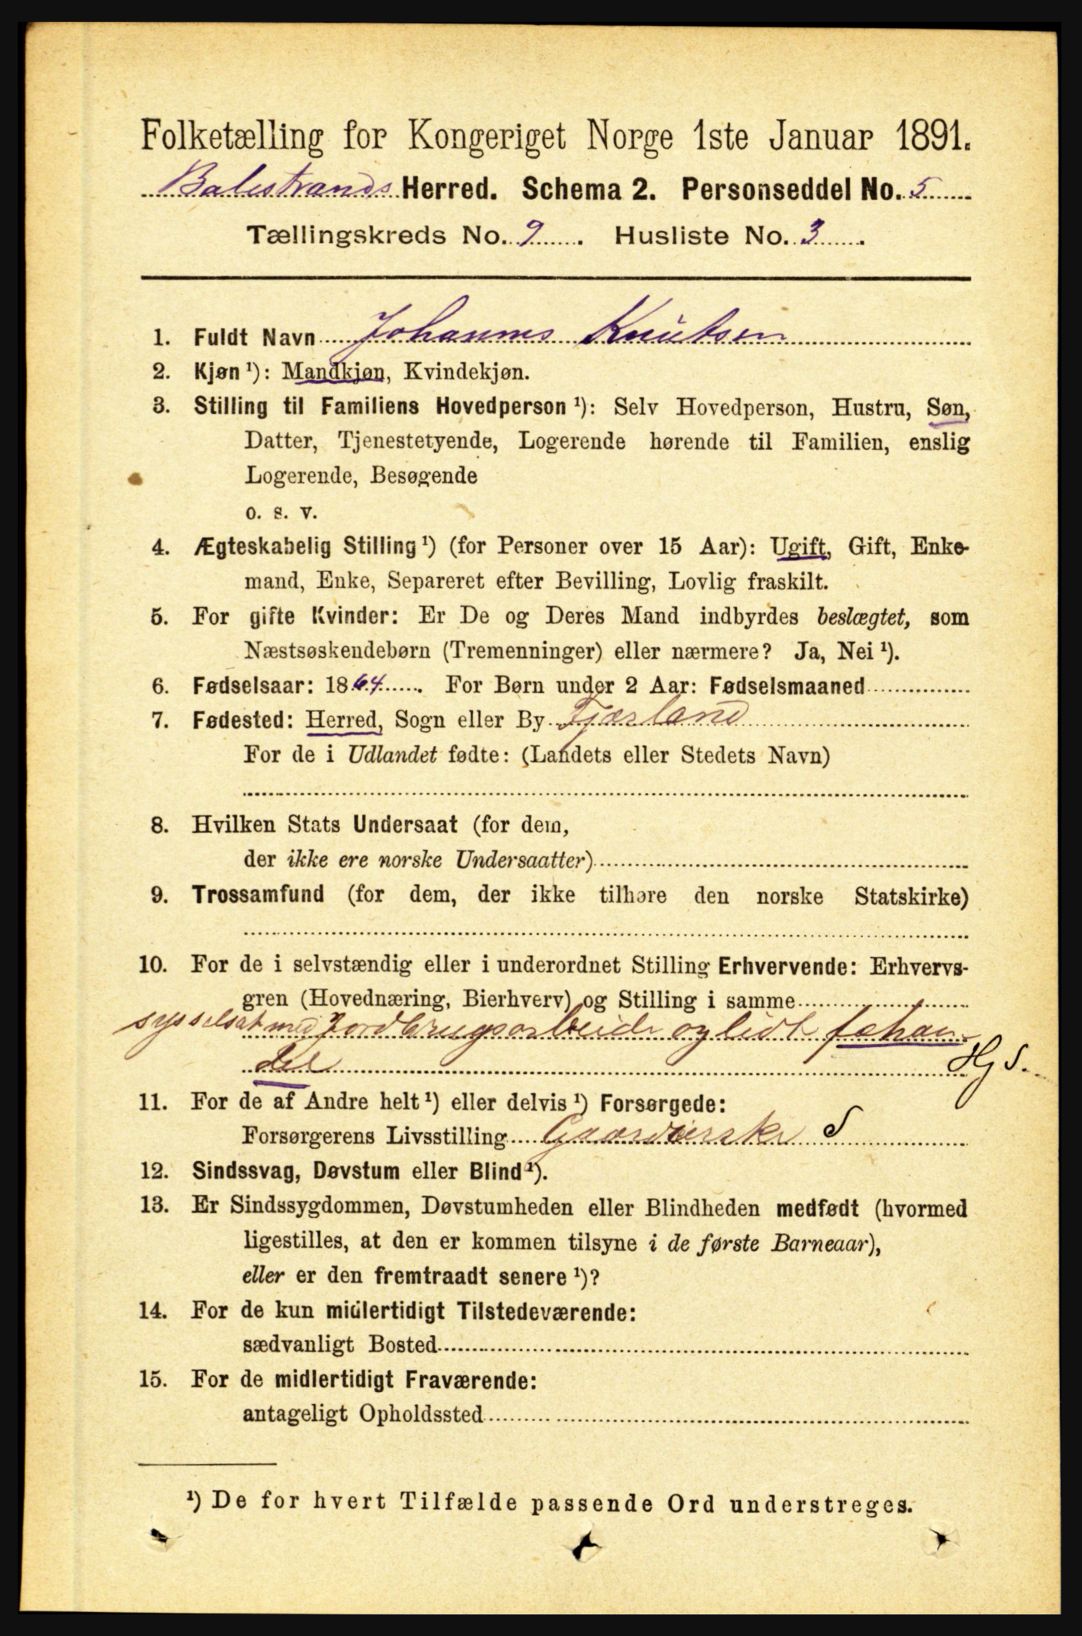 Folketælling for Kongeriget Norge 1ste Januar 1891.
Balestrands Herred. Schema 2. Personseddel No. 5
Tællingskreds No. 9. Husliste No. 3.
1. Fuldt Navn Johannes Knutsen
2. Kjøn ¹): Mandkjøn, Kvindekjøn.
3. Stilling til Familiens Hovedperson ¹): Selv Hovedperson, Hustru, Søn,
Datter, Tjenestetyende, Logerende hørende til Familien, enslig
Logerende, Besøgende
o. s. v.
4. Ægteskabelig Stilling ¹) (for Personer over 15 Aar): Ugift, Gift, Enke-
mand, Enke, Separeret efter Bevilling, Lovlig fraskilt.
5. For gifte Kvinder: Er De og Deres Mand indbyrdes beslægtet, som
Næstsøskendebørn (Tremenninger) eller nærmere? Ja, Nei ¹).
6. Fødselsaar: 1864. For Børn under 2 Aar: Fødselsmaaned
7. Fødested: Herred, Sogn eller By Fjærland
For de i Udlandet fødte: (Landets eller Stedets Navn)
8. Hvilken Stats Undersaat (for dem,
der ikke ere norske Undersaatter)
9. Trossamfund (for dem, der ikke tilhøre den norske Statskirke)
10. For de i selvstændig eller i underordnet Stilling Erhvervende: Erhvervs-
gren (Hovednæring, Bierhverv) og Stilling i samme
sysselsat med Jordbrugsarbeide og lidt fæhan-
del Hj S.
11. For de af Andre helt ¹) eller delvis ¹) Forsørgede:
Forsørgerens Livsstilling S
12. Sindssvag, Døvstum eller Blind ¹).
13. Er Sindssygdommen, Døvstumheden eller Blindheden medfødt (hvormed
ligestilles, at den er kommen tilsyne i de første Barneaar),
eller er den fremtraadt senere ¹)?
14. For de kun midlertidigt Tilstedeværende:
sædvanligt Bosted
15. For de midlertidigt Fraværende:
antageligt Opholdssted
¹) De for hvert Tilfælde passende Ord understreges.